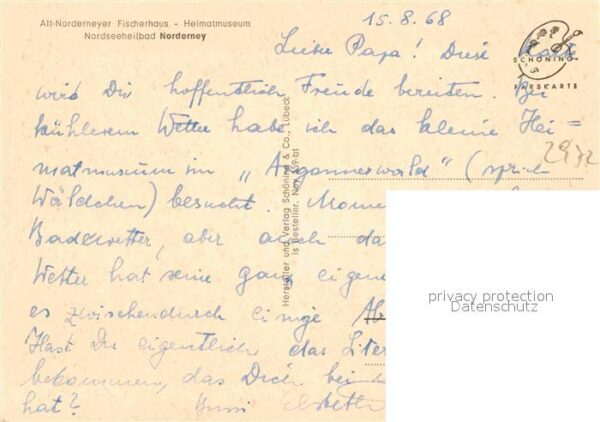 Alt-Norderneyer Fischerhaus - Heimatmuseum
Nordseeheilbad Norderney
15.8.68
SCHÖNING
FARBKARTE
Lieber Papa! Diese Karte
wird Dir hoffentlich Freude bereiten. Bei
kühlerem Wetter habe ich das kleine Hei=
matmuseum im „Argonnerwald" (sprich
Wäldchen) besucht.
Badewetter, aber auch da
Wetter hat seine ganz eigene
es zwischendurch einige
Hast Du eigentlich das
bekommen, das Dich bei
hat? Bussi Elsbeth
2972
Hersteller und Verlag Schöning & Co., Lübeck
is Bestellnr. Noy 459 bt
privacy protection
Datenschutz